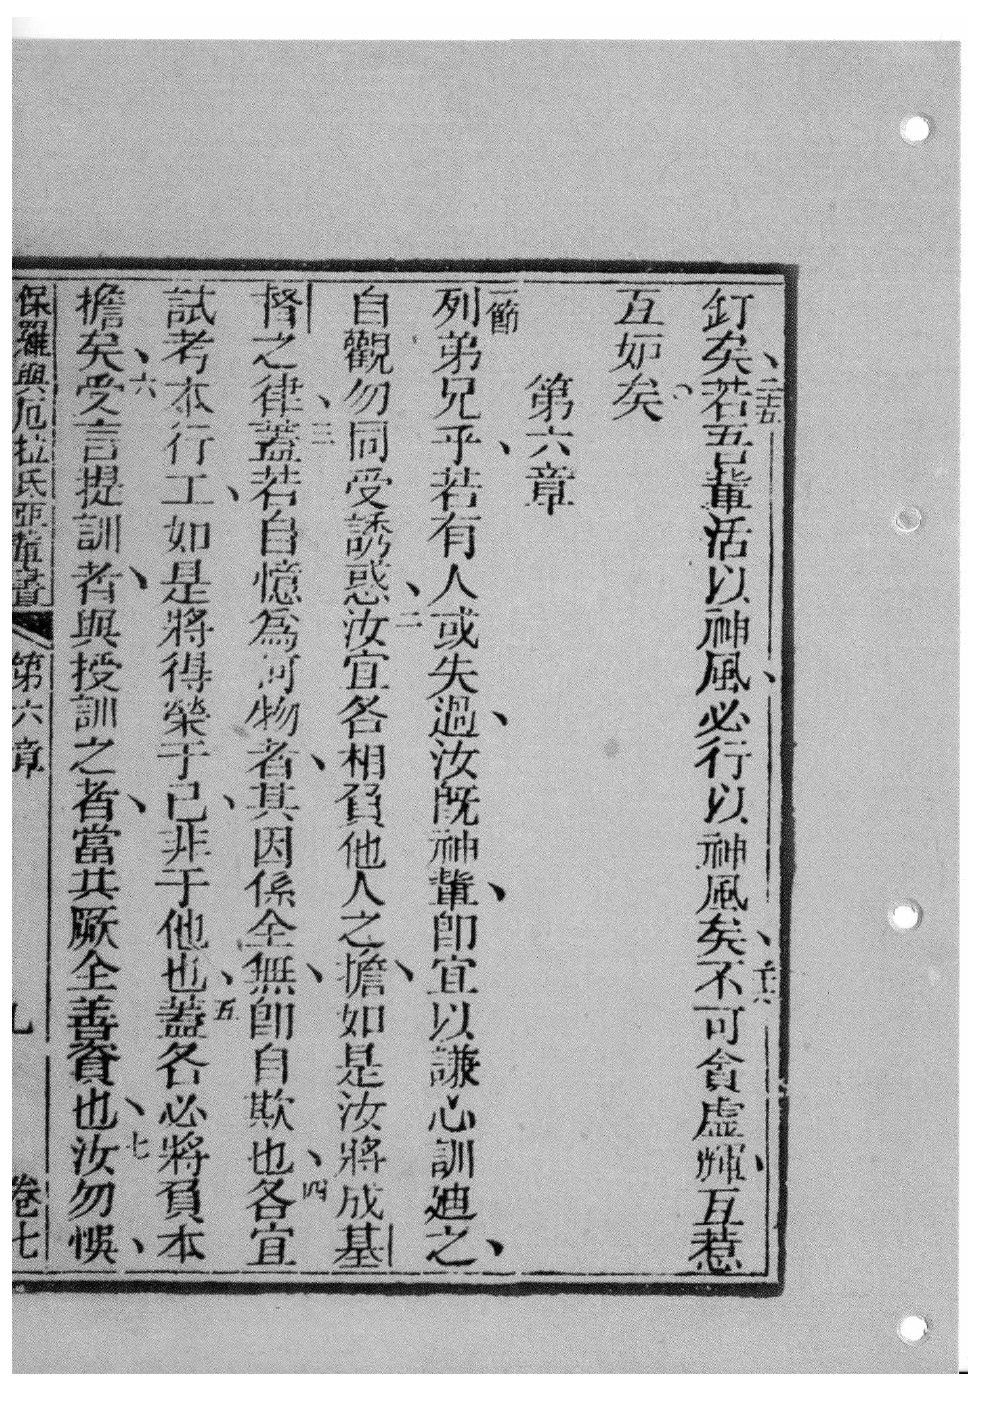 釘矣、二十五若吾輩活以神風、必行以神風矣、二十六不可貪虛輝、互惹
互妒矣。
第六章
一節列弟兄乎、若有人或失過、汝既神輩、卽宜以謙心訓廸之、
自觀勿同受誘惑、二汝宜各相負他人之擔、如是汝將成基
督之律、三蓋若自憶爲何物者、其因係全無、卽自欺也、四各宜
試考本行工、如是將得榮于己、非于他也、五蓋各必將負本
擔矣、六受言提訓者、與授訓之者、當共厥全善資也、七汝勿悞、
保羅與厄拉氏亞輩書 第六章 九 卷七